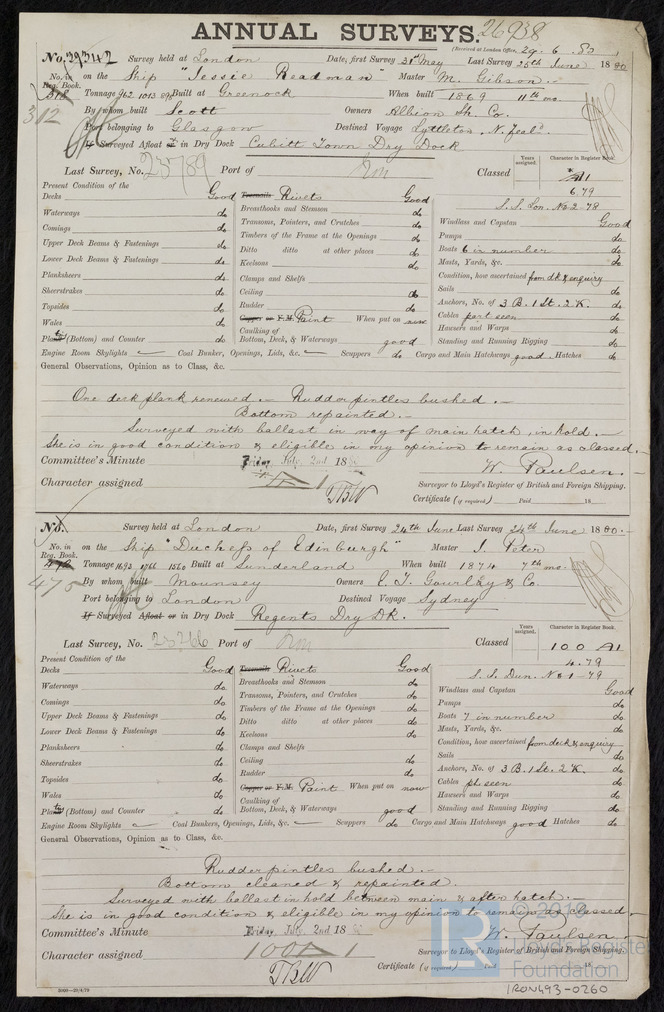 ANNUAL SURVEYS. 26938
(Received at London Office, 29. 6. 80)
No. 29342 Survey held at London Date, first Survey 31st May Last Survey 25th June 1880
No. in Reg. Book. on the Ship "Jessie Readman" Master M. Gibson.
312 Tonnage 962 1013 Built at Greenock When built 1869 11th mo.
By whom built Scott Owners Albion Sh. Co.
Port belonging to Glasgow Destined Voyage Lyttleton, N. Zeal.
If Surveyed Afloat or in Dry Dock Cubitt Town Dry Dock
Last Survey, No. 23789 Port of Lon Classed A1
Years assigned. Character in Register Book.
6.79
S. S. Lon. No 2 78
Present Condition of the
Decks Good Treenails Rivets Good
Waterways do Breasthooks and Stemson do Windlass and Capstan Good
Comings do Transoms, Pointers, and Crutches do Pumps do
Upper Deck Beams & Fastenings do Timbers of the Frame at the Openings do Boats 6 in number do
Lower Deck Beams & Fastenings do Ditto ditto at other places do Masts, Yards, &c. do
Planksheers do Keelsons do Condition, how ascertained from dk & enquiry
Sheerstrakes do Clamps and Shelfs Sails do
Topsides do Ceiling do Anchors, No. of 3 B. 1 St. 2 K. do
Wales do Rudder do Cables part seen do
Plank (Bottom) and Counter do Copper or Y.M. Paint When put on now Hawsers and Warps do
Caulking of Bottom, Deck, & Waterways good Standing and Running Rigging do
Engine Room Skylights Coal Bunker, Openings, Lids, &c. Scuppers do Cargo and Main Hatchways good Hatches do
General Observations, Opinion as to Class, &c.
One deck plank renewed. Rudder pintles bushed.
Bottom repainted.
Surveyed with ballast in way of main hatch, in hold.
She is in good condition & eligible in my opinion to remain as classed.
Committee's Minute Friday July. 2nd 18 W. Paulsen.
Character assigned A1 Surveyor to Lloyd's Register of British and Foreign Shipping.
TBW Certificate (if required) Paid 18
No. Survey held at London Date, first Survey 24th June Last Survey 24th June 1880
No. in Reg. Book. on the Ship "Duchess of Edinburgh" Master J. Peter
475 Tonnage 1693 1766 1560 Built at Sunderland When built 1874 7th mo.
By whom built Mounsey Owners E. T. Gourley & Co.
Port belonging to London Destined Voyage Sydney
If Surveyed Afloat or in Dry Dock Regents Dry Dk.
Last Survey, No. 23266 Port of Lon Classed 100 A1
Years assigned. Character in Register Book.
4.79
S. S. Dun. No 1-79
Present Condition of the
Decks Good Treenails Rivets Good
Waterways do Breasthooks and Stemson do Windlass and Capstan Good
Comings do Transoms, Pointers, and Crutches do Pumps do
Upper Deck Beams & Fastenings do Timbers of the Frame at the Openings do Boats 7 in number do
Lower Deck Beams & Fastenings do Ditto ditto at other places do Masts, Yards, &c. do
Planksheers do Keelsons do Condition, how ascertained from deck & enquiry
Sheerstrakes do Clamps and Shelfs Sails do
Topsides do Ceiling do Anchors, No. of 3 B. 1 St. 2 K. do
Wales do Rudder do Cables pt. seen do
Plank (Bottom) and Counter do Copper or Y.M. Paint When put on now Hawsers and Warps do
Caulking of Bottom, Deck, & Waterways good Standing and Running Rigging do
Engine Room Skylights Coal Bunkers, Openings, Lids, &c. Scuppers do Cargo and Main Hatchways good Hatches do
General Observations, Opinion as to Class, &c.
Rudder pintles bushed.
Bottom cleaned & repainted.
Surveyed with ballast in hold between main & after hatch.
She is in good condition & eligible in my opinion to remain as classed.
Committee's Minute Friday July. 2nd 18 W. Paulsen.
Character assigned 100 A 1 Surveyor to Lloyd's Register of British and Foreign Shipping.
TBW Certificate (if required) Paid 18
© 2019
LR Lloyd's Register Foundation
IRON493-0260